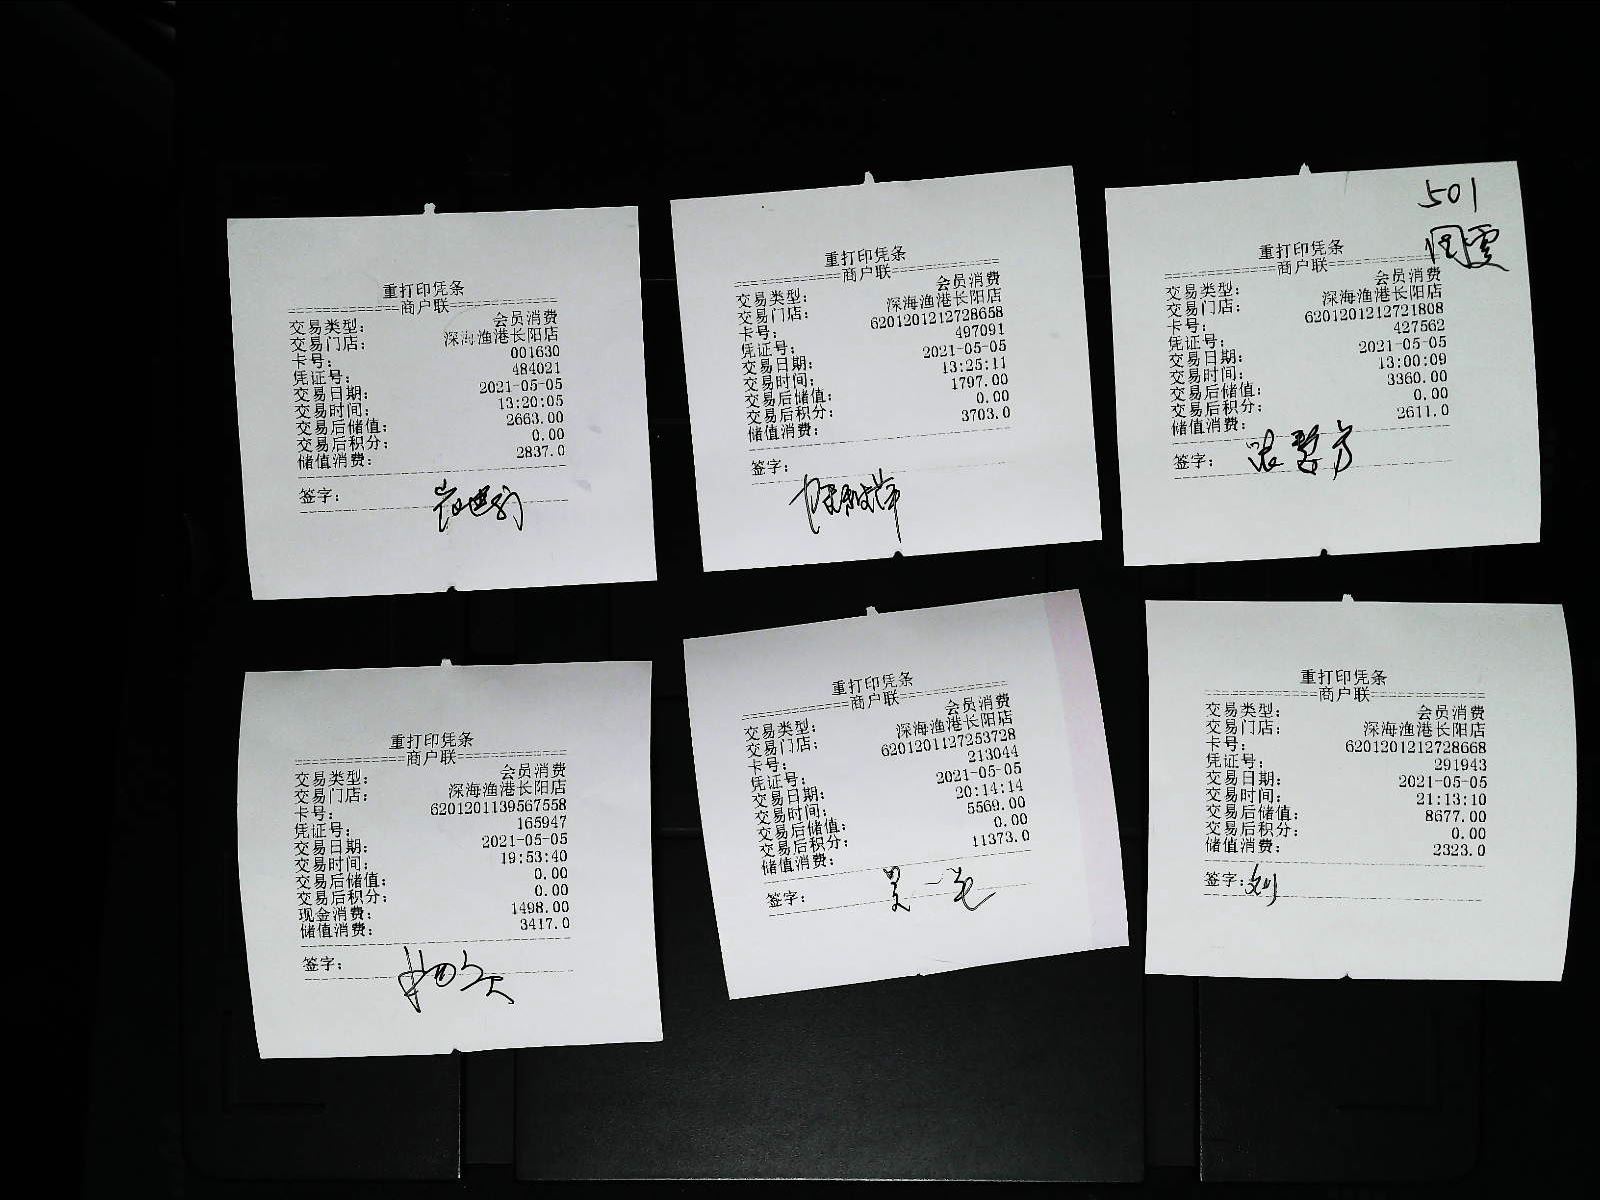 重打印凭条
================商户联================
交易类型： 会员消费
交易门店： 深海渔港长阳店
卡号： 001630
凭证号： 484021
交易日期： 2021-05-05
交易时间： 13:20:05
交易后储值： 2663.00
交易后积分： 0.00
储值消费： 2837.0
签字：
重打印凭条
================商户联================
交易类型： 会员消费
交易门店： 深海渔港长阳店
卡号： 6201201212728658
凭证号： 497091
交易日期： 2021-05-05
交易时间： 13:25:11
交易后储值： 1797.00
交易后积分： 0.00
储值消费： 3703.0
签字：
501
重打印凭条
================商户联================
交易类型： 会员消费
交易门店： 深海渔港长阳店
卡号： 6201201212721808
凭证号： 427562
交易日期： 2021-05-05
交易时间： 13:00:09
交易后储值： 3360.00
交易后积分： 0.00
储值消费： 2611.0
签字：
重打印凭条
================商户联================
交易类型： 会员消费
交易门店： 深海渔港长阳店
卡号： 6201201139567558
凭证号： 165947
交易日期： 2021-05-05
交易时间： 19:53:40
交易后储值： 0.00
交易后积分： 0.00
现金消费： 1498.00
储值消费： 3417.0
签字：
重打印凭条
================商户联================
交易类型： 会员消费
交易门店： 深海渔港长阳店
卡号： 6201201127253728
凭证号： 213044
交易日期： 2021-05-05
交易时间： 20:14:14
交易后储值： 5569.00
交易后积分： 0.00
储值消费： 11373.0
签字：
重打印凭条
================商户联================
交易类型： 会员消费
交易门店： 深海渔港长阳店
卡号： 6201201212728668
凭证号： 291943
交易日期： 2021-05-05
交易时间： 21:13:10
交易后储值： 8677.00
交易后积分： 0.00
储值消费： 2323.0
签字：刘